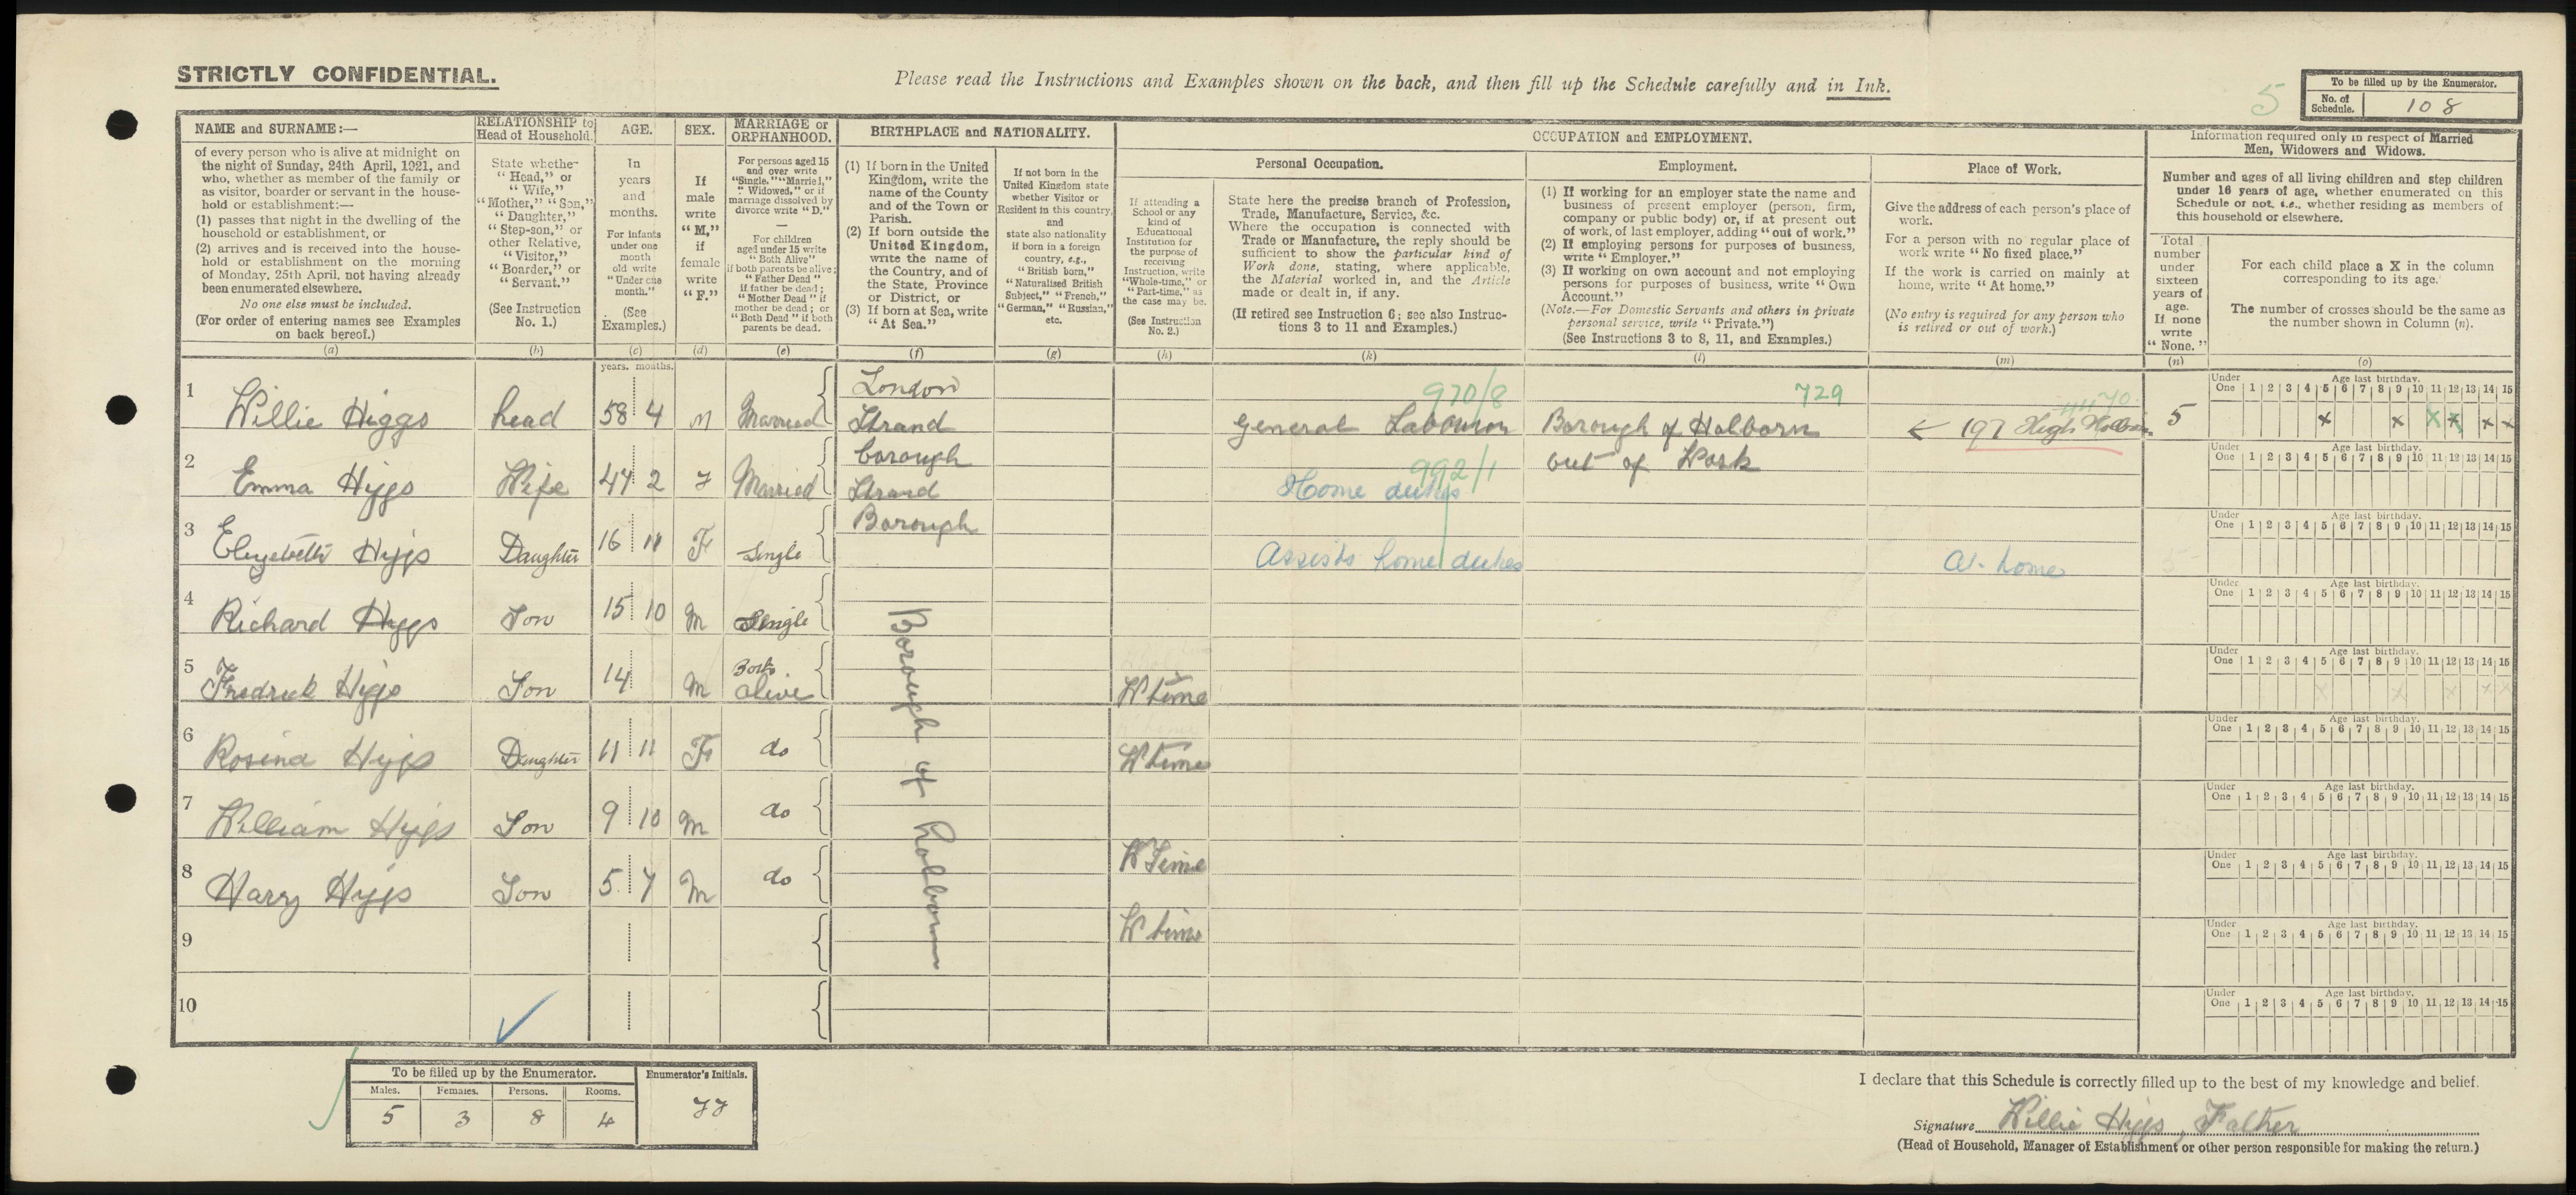 STRICTLY CONFIDENTIAL.
Please read the Instructions and Examples shown on the back, and then fill up the Schedule carefully and in Ink.
5
To be filled up by the Enumerator.
No. of Schedule. 108
NAME and SURNAME:—
of every person who is alive at midnight on
the night of Sunday, 24th April, 1921, and
who, whether as member of the family or
as visitor, boarder or servant in the house-
hold or establishment:—
(1) passes that night in the dwelling of the
household or establishment, or
(2) arrives and is received into the house-
hold or establishment on the morning
of Monday, 25th April, not having already
been enumerated elsewhere.
No one else must be included.
(For order of entering names see Examples
on back hereof.)
(a)
RELATIONSHIP to
Head of Household.
State whether
"Head," or
"Wife,"
"Mother," "Son,"
"Daughter,"
"Step-son," or
other Relative,
"Visitor,"
"Boarder," or
"Servant."
(See Instruction
No. 1.)
(b)
AGE.
In
years
and
months.
For infants
under one
month
old write
"Under one
month."
(See
Examples.)
(c)
SEX.
If
male
write
"M,"
if
female
write
"F."
(d)
MARRIAGE or
ORPHANHOOD.
For persons aged 15
and over write
"Single," "Married,"
"Widowed," or if
marriage dissolved by
divorce write "D."
—
For children
aged under 15 write
"Both Alive"
if both parents be alive;
"Father Dead"
if father be dead;
"Mother Dead" if
mother be dead; or
"Both Dead" if both
parents be dead.
(e)
BIRTHPLACE and NATIONALITY.
(1) If born in the United
Kingdom, write the
name of the County
and of the Town or
Parish.
(2) If born outside the
United Kingdom,
write the name of
the Country, and of
the State, Province
or District, or
(3) If born at Sea, write
"At Sea."
(f)
If not born in the
United Kingdom state
whether Visitor or
Resident in this country,
and
state also nationality
if born in a foreign
country, e.g.,
"British born,"
"Naturalised British
Subject," "French,"
"German," "Russian,"
etc.
(g)
OCCUPATION and EMPLOYMENT.
Personal Occupation.
If attending a
School or any
kind of
Educational
Institution for
the purpose of
receiving
Instruction, write
"Whole-time," or
"Part-time," as
the case may be.
(See Instruction
No. 2.)
(h)
State here the precise branch of Profession,
Trade, Manufacture, Service, &c.
Where the occupation is connected with
Trade or Manufacture, the reply should be
sufficient to show the particular kind of
Work done, stating, where applicable,
the Material worked in, and the Article
made or dealt in, if any.
(If retired see Instruction 6; see also Instruc-
tions 3 to 11 and Examples.)
(k)
Employment.
(1) If working for an employer state the name and
business of present employer (person, firm,
company or public body) or, if at present out
of work, of last employer, adding "out of work."
(2) If employing persons for purposes of business,
write "Employer."
(3) If working on own account and not employing
persons for purposes of business, write "Own
Account."
(Note.—For Domestic Servants and others in private
personal service, write "Private.")
(See Instructions 3 to 8, 11, and Examples.)
(l)
Place of Work.
Give the address of each person's place of
work.
For a person with no regular place of
work write "No fixed place."
If the work is carried on mainly at
home, write "At home."
(No entry is required for any person who
is retired or out of work.)
(m)
Information required only in respect of Married
Men, Widowers and Widows.
Number and ages of all living children and step children
under 16 years of age, whether enumerated on this
Schedule or not, i.e., whether residing as members of
this household or elsewhere.
Total
number
under
sixteen
years of
age.
If none
write
"None."
(n)
For each child place a X in the column
corresponding to its age.
The number of crosses should be the same as
the number shown in Column (n).
(o)
years. months.
1 Willie Higgs head 58 4 M Married London Strand General Labourer 970/8 Borough of Holborn 729 ← 197 High Holborn 5
Under One 1 2 3 4 5 6 7 8 9 10 11 12 13 14 15 Age last birthday.
x x x x x x
2 Emma Higgs Wife 47 2 F Married borough Strand Home duties 992/1 out of Work
Under One 1 2 3 4 5 6 7 8 9 10 11 12 13 14 15 Age last birthday.
3 Elizebeth Higgs Daughter 16 11 F Single Borough Assists home duties At home
Under One 1 2 3 4 5 6 7 8 9 10 11 12 13 14 15 Age last birthday.
4 Richard Higgs Son 15 10 M Single
Under One 1 2 3 4 5 6 7 8 9 10 11 12 13 14 15 Age last birthday.
Borough of Holborn
5 Fredrick Higgs Son 14 M Both alive W time
Under One 1 2 3 4 5 6 7 8 9 10 11 12 13 14 15 Age last birthday.
6 Rosina Higgs Daughter 11 11 F do W time
Under One 1 2 3 4 5 6 7 8 9 10 11 12 13 14 15 Age last birthday.
7 William Higgs Son 9 10 M do W Time
Under One 1 2 3 4 5 6 7 8 9 10 11 12 13 14 15 Age last birthday.
8 Harry Higgs Son 5 7 M do W time
Under One 1 2 3 4 5 6 7 8 9 10 11 12 13 14 15 Age last birthday.
9
Under One 1 2 3 4 5 6 7 8 9 10 11 12 13 14 15 Age last birthday.
10
Under One 1 2 3 4 5 6 7 8 9 10 11 12 13 14 15 Age last birthday.
To be filled up by the Enumerator.
Males. Females. Persons. Rooms.
5 3 8 4
Enumerator's Initials.
I declare that this Schedule is correctly filled up to the best of my knowledge and belief.
Signature Willie Higgs, Father
(Head of Household, Manager of Establishment or other person responsible for making the return.)